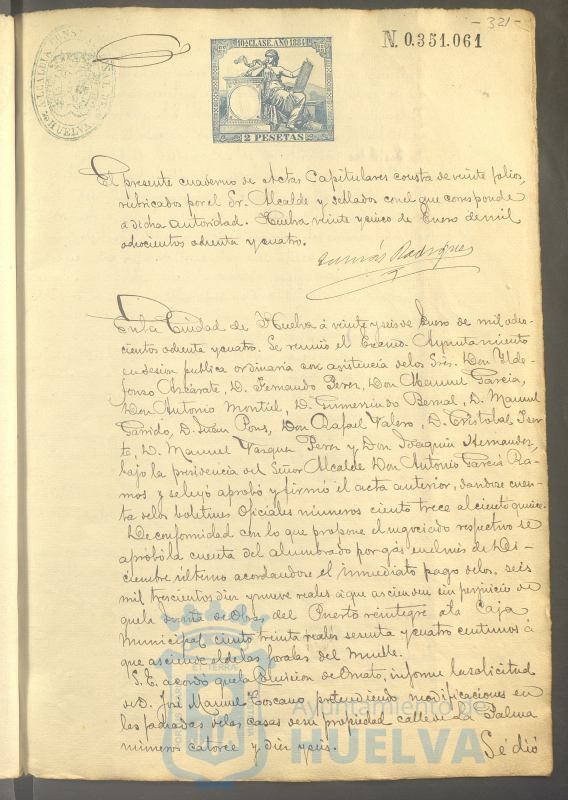 - 321 -
N. 0.351.061
10ª CLASE. AÑO 1884
2 PESETAS
HUELVA
El presente cuaderno de Actas Capitulares consta de veinte folios,
rubricados por el Sr. Alcalde y sellados con el que corresponde
a dicha autoridad. Huelva veinte y cinco de Enero de mil
ochocientos ochenta y cuatro.
Rodriguez
En la Ciudad de Huelva á veinte y seis de Enero de mil ocho-
cientos ochenta y cuatro. Se reunió el Excmo. Ayuntamiento
en sesion publica ordinaria con asistencia de los Sres. Don Ylde-
fonso Azcárate, D. Fernando Perez, Don Manuel Garcia,
Don Antonio Montiel, D. Gumersindo Bernal, D. Manuel
Garrido, D. Juan Pons, Don Rafael Valero, D. Cristobal Iser-
te, D. Manuel Vazquez Perez y Don Joaquin Hernandez,
bajo la presidencia del Señor Alcalde Don Antonio Garcia Ra-
mos y se leyó aprobó y firmó el acta anterior, dandose cuen-
ta de los boletines Oficiales números ciento trece al ciento quince.
De conformidad con lo que propone el negociado respectivo se
aprobó la cuenta del alumbrado por gas en el mes de Di-
ciembre último acordandose el inmediato pago de los seis
mil trescientos diez y nueve reales á que asciende sin perjuicio de
que la Junta de Obras del Puerto reintegre á la Caja
Municipal ciento treinta reales sesenta y cuatro centimos á
que asciende el de las farolas del Muelle.
S. E. acordó que la Comision de Ornato, informe la solicitud
de D. José Manuel Toscano, pretendiendo modificaciones en
las fachadas de las casas de su propiedad calle de La Palma
números catorce y diez y seis.
Se dió
Ayuntamiento de
HUELVA